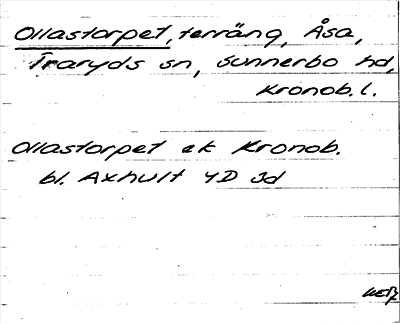 Ollastorpet, terräng, Åsa,
Traryds sn, Sunnerbo hd,
Kronob. l.
Ollastorpet ek Kronob.
bl. Axhult 4D 3d